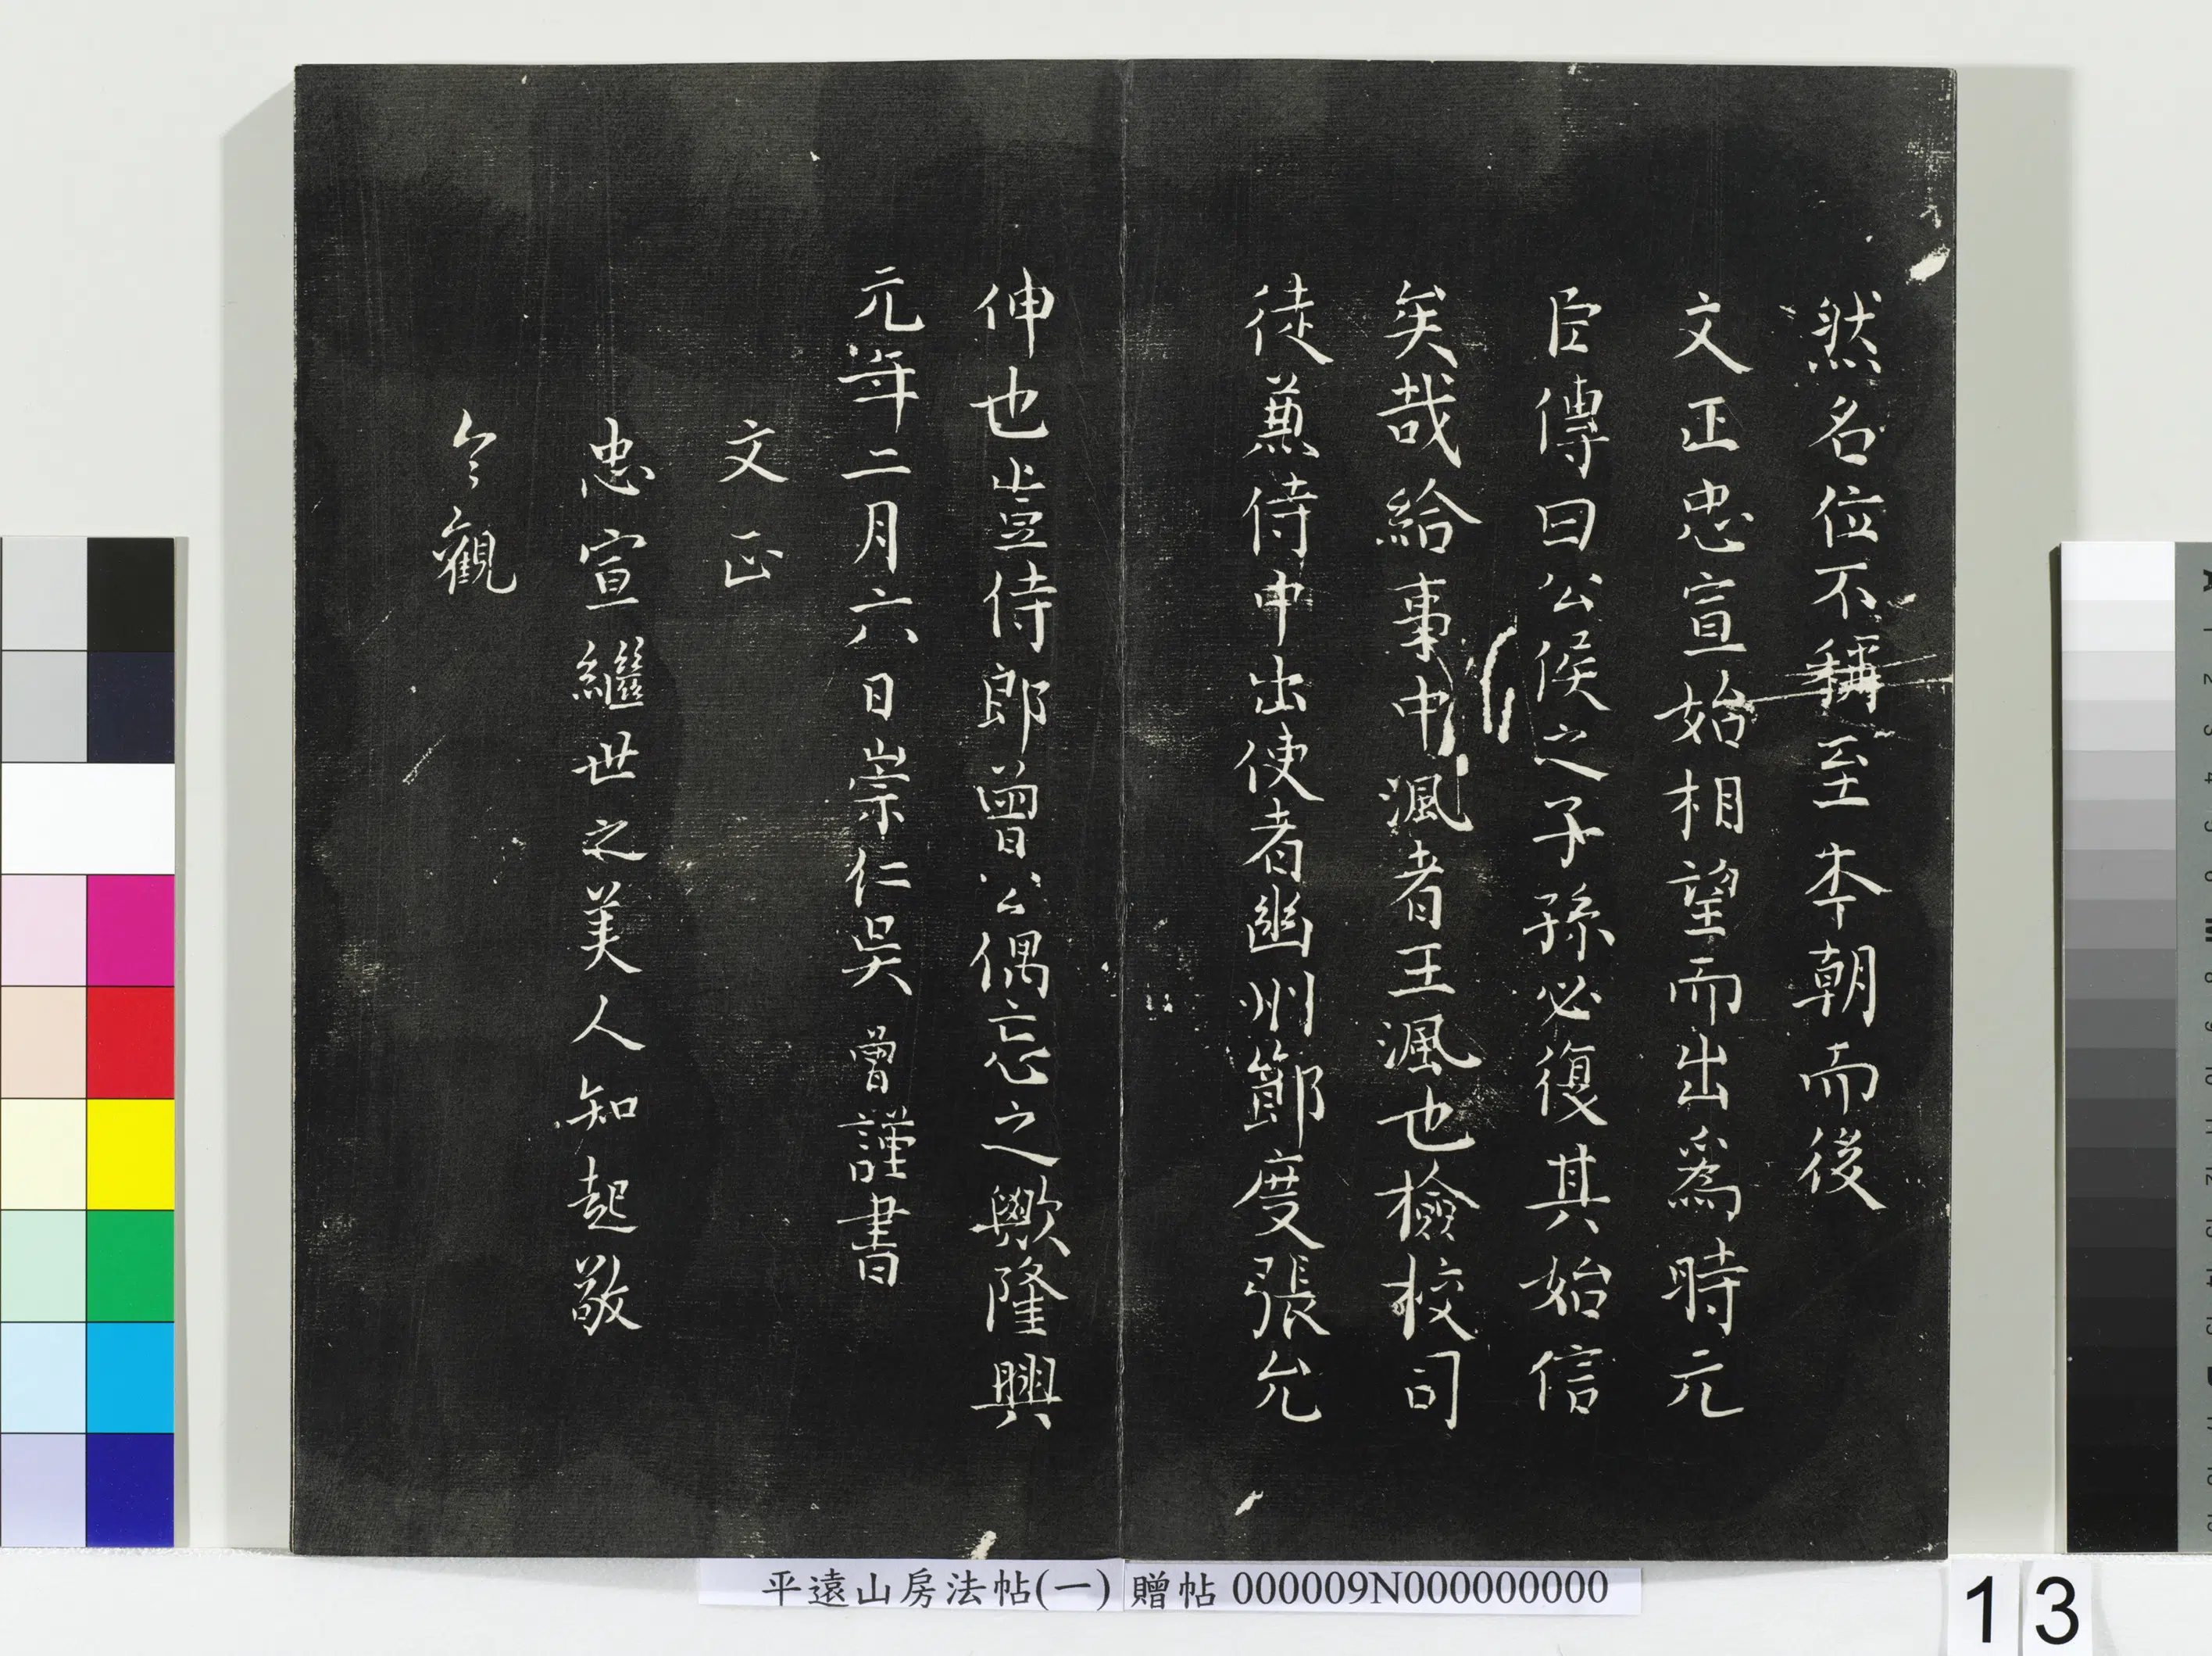 然名位不稱至本朝而後
文正忠宣始相望而出爲時元
臣傳曰公侯之子孫必復其始信
矣哉給事中渢者王渢也檢校司
徒兼侍中出使者幽州節度張允
伸也豈侍郎曾公偶忘之歟隆興
元年二月六日崇仁吳曾謹書
文正
忠宣繼世之美人知起敬
今觀
平遠山房法帖(一) 贈帖 000009N000000000
13